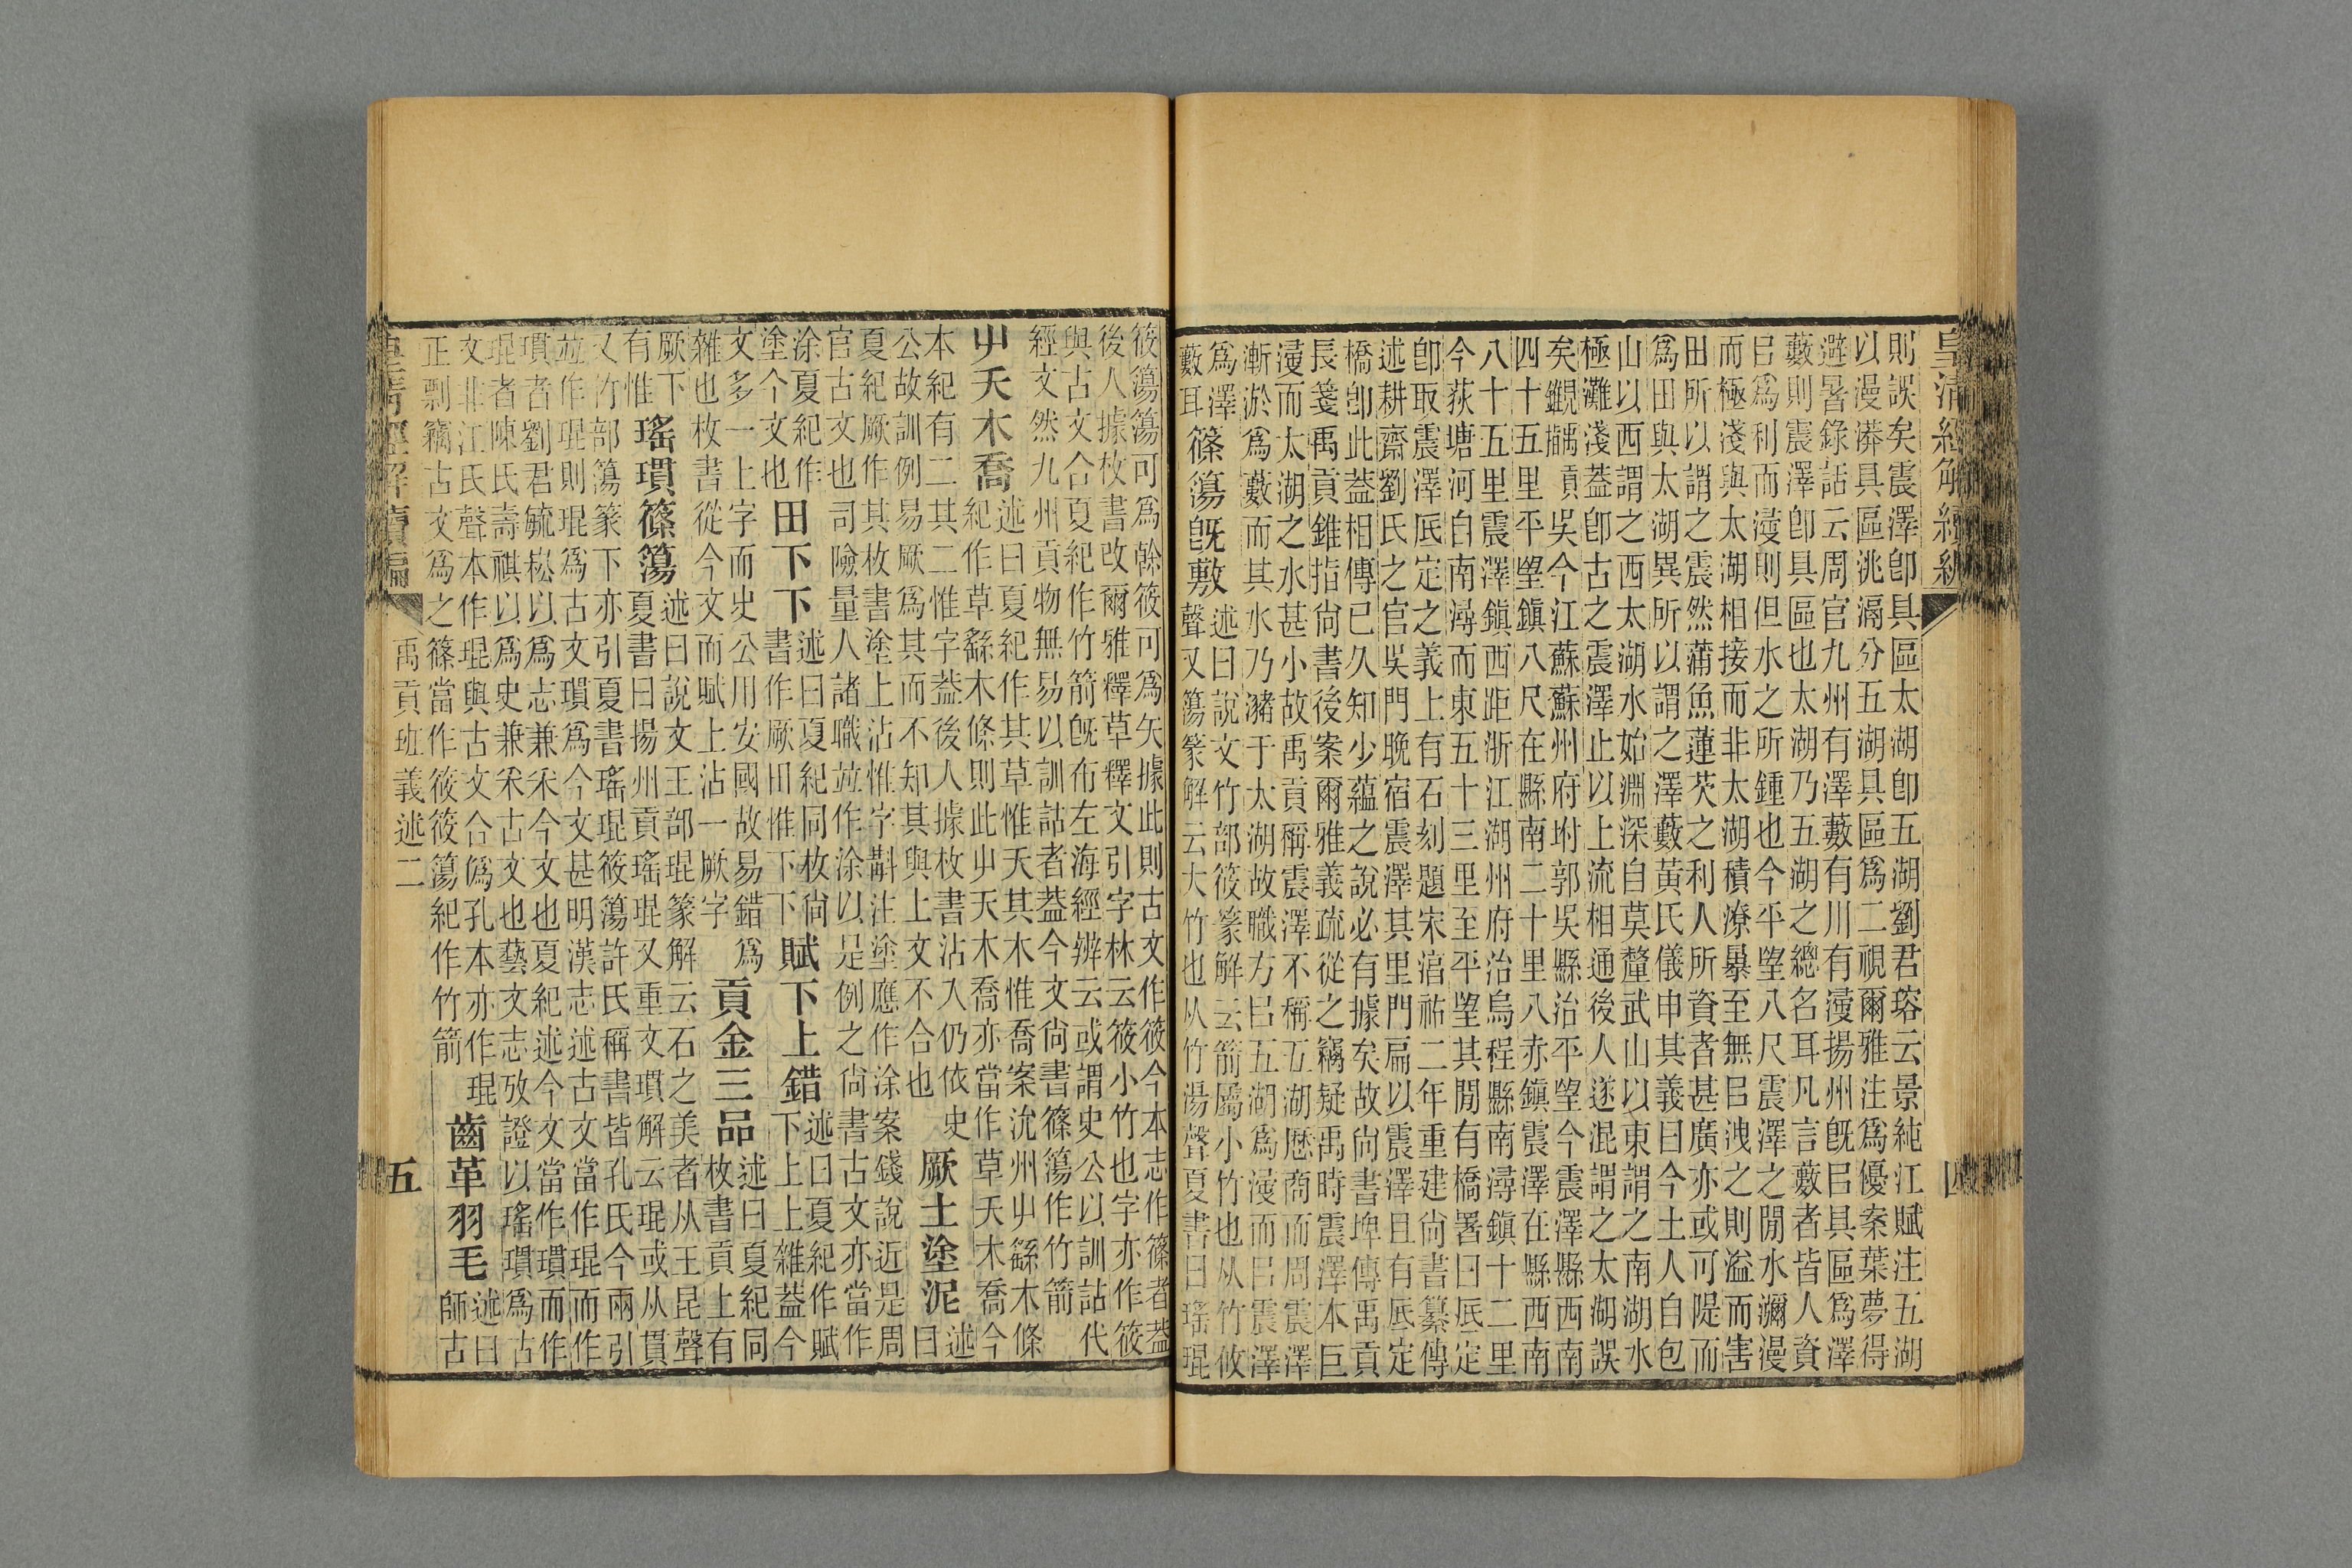 皇清經解續編
則誤矣震澤卽具區太湖卽五湖劉君瑢云景純江賦注五湖
以漫漭具區洮滆分五湖具區爲二視爾雅注爲優案葉夢得
避暑錄話云周官九州有澤藪有川有濅揚州旣㠯具區爲澤
藪則震澤卽具區也太湖乃五湖之總名耳凡言藪者皆人資
㠯爲利而濅則但水之所鍾也今平望八尺震澤之閒水瀰漫
而極淺與太湖相接而非太湖積潦暴至無㠯洩之則溢而害
田所以謂之震然蒲魚蓮芡之利人所資者甚廣亦或可隄而
爲田與太湖異所以謂之澤藪黃氏儀申其義曰今土人自包
山以西謂之西太湖水始淵深自莫釐武山以東謂之南湖水
極灘淺蓋卽古之震澤止以上流相通後人遂混謂之太湖誤
矣覶縷貢吳今江蘇蘇州府坿郭吳縣治平望今震澤縣西南
四十五里平望鎮八尺在縣南二十里八亦鎮震澤在縣西南
八十五里震澤鎮西距浙江湖州府治烏程縣南潯鎮十二里
今荻塘河自南潯而東五十三里至平望其閒有橋署曰厎定
卽取震澤厎定之義上有石刻題宋湻祐二年重建尙書纂傳
述耕齋劉氏之官吳門晚宿震澤其里門扁以震澤且有厎定
橋卽此蓋相傳已久知少蘊之說必有據矣故尙書埤傳禹貢
長箋禹貢錐指尙書後案爾雅義疏從之竊疑禹時震澤本巨
濅而太湖之水甚小故禹貢稱震澤不稱五湖歷商而周震澤
漸淤爲藪而其水乃瀦于太湖故職方㠯五湖爲濅而㠯震澤
爲澤 篠簜旣敷 述曰說文竹部筱篆解云箭屬小竹也从竹攸
藪耳 聲又簜篆解云大竹也从竹湯聲夏書曰瑤琨
筱簜簜可爲榦筱可爲矢據此則古文作筱今本志作篠者蓋
後人據枚書改爾雅釋草釋文引字林云筱小竹也字亦作筱
與古文合夏紀作竹箭旣布左海經辨云或謂史公以訓詁代
經文然九州貢物無易以訓詁者蓋今文尙書篠簜作竹箭
屮夭木喬 述曰夏紀作其草惟夭其木惟喬案沇州屮繇木條
紀作草繇木條則此屮夭木喬亦當作草夭木喬今
本紀有二其二惟字蓋後人據枚書沾入仍依史 厥土塗泥 述
公故訓例易厥爲其而不知其與上文不合也 曰
夏紀厥作其枚書塗上沾惟字斠注塗應作涂案錢說近是周
官古文也司險量人諸職並作涂以是例之尙書古文亦當作
涂夏紀作 田下下 述曰夏紀同枚尙 賦下上錯 述曰夏紀作賦
塗今文也 書作厥田惟下下 下上上雜蓋今
文多一上字而史公用安國故易錯爲 貢金三品 述曰夏紀同
雜也枚書從今文而賦上沾一厥字 枚書貢上有
厥下 瑤瓆篠簜 述曰說文王部琨篆解云石之美者从王昆聲
有惟 夏書曰揚州貢瑤琨又重文瓆解云琨或从貫
又竹部簜篆下亦引夏書瑤琨筱簜許氏稱書皆孔氏今兩引
並作琨則琨爲古文瓆爲今文甚明漢志述古文當作琨而作
瓆者劉君毓崧以爲志兼采今文也夏紀述今文當作瓆而作
琨者陳氏壽祺以爲史兼采古文也藝文志攷證以瑤瓆爲古
文非江氏聲本作琨與古文合僞孔本亦作琨 齒革羽毛 述曰
正剽竊古文爲之篠當作筱筱簜紀作竹箭 師古
禹貢班義述二
五